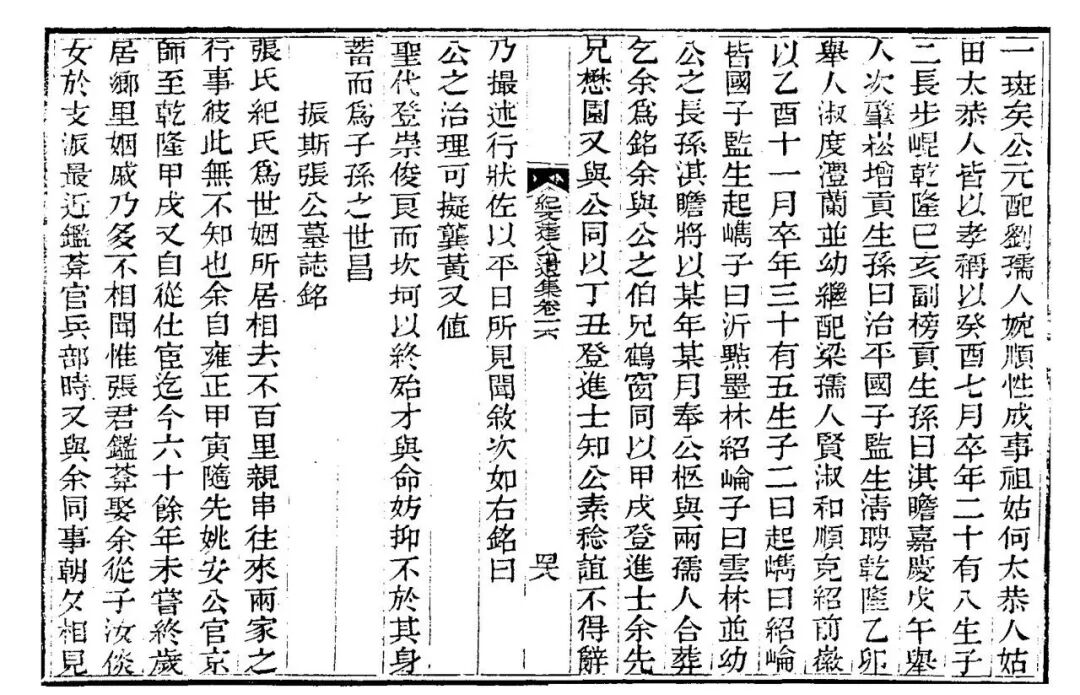 一斑矣公元配劉孺人婉順性成事祖姑何太恭人姑
田太恭人皆以孝稱以癸酉七月卒年二十有八生子
二長步崐乾隆己亥副榜貢生孫曰淇瞻嘉慶戊午舉
人次肇崧增貢生孫曰治平國子監生淸聘乾隆乙卯
舉人淑度灃蘭並幼繼配梁孺人賢淑和順克紹前徽
以乙酉十一月卒年三十有五生子二曰起嶲曰紹崘
皆國子監生起嶲子曰沂點墨林紹崘子曰雲林並幼
公之長孫淇瞻將以某年某月奉公柩與兩孺人合葬
乞余爲銘余與公之伯兄鶴窗同以甲戌登進士余先
兄懋園又與公同以丁丑登進士知公素稔誼不得辭
紀文達公遺集卷十六
哭
乃撮述行狀佐以平日所見聞敘次如右銘曰
公之治理可擬龔黃又值
聖代登崇俊良而坎坷以終殆才與命妨抑不於其身
蓄而爲子孫之世昌
振斯張公墓誌銘
張氏紀氏爲世姻所居相去不百里親串往來兩家之
行事彼此無不知也余自雍正甲寅隨先姚安公官京
師至乾隆甲戌又自從仕宦迄今六十餘年未嘗終歲
居鄉里姻戚乃多不相聞惟張君鑑葊娶余從子汝倓
女於支派最近鑑葊官兵部時又與余同事朝夕相見